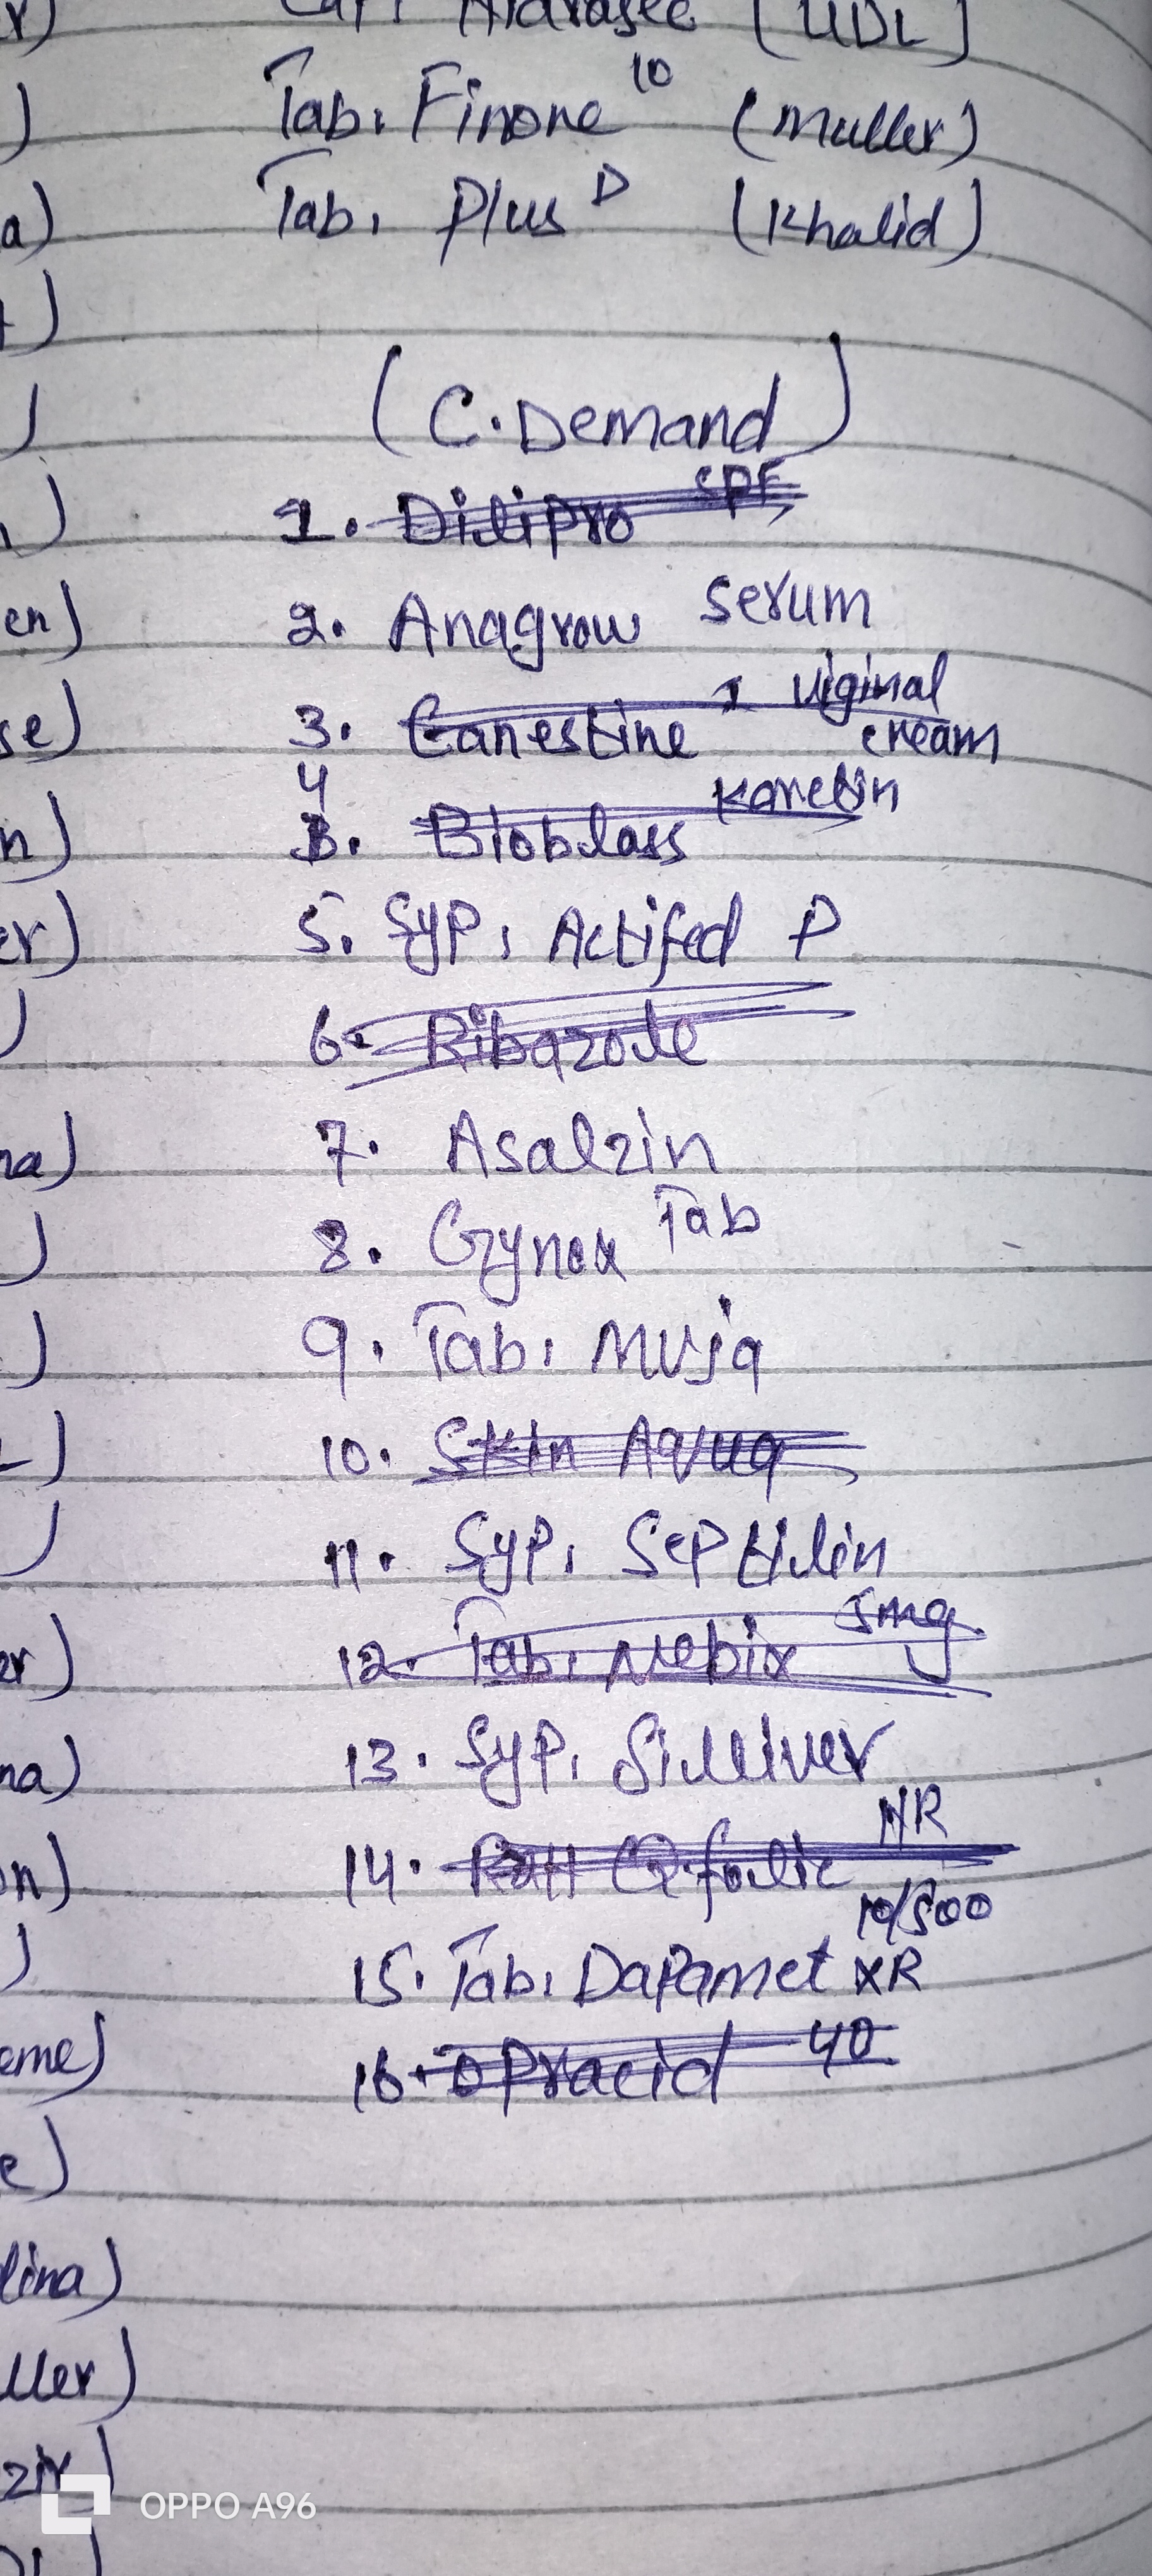 r)
[UDL]
)
Tab. Finone 10 (Muller)
a)
Tab. Plus D (Khalid)
)
(C. Demand)
)
1. Dilipro SPF
en)
2. Anagrow Serum
se)
3. Canestine 1 Viginal cream
n)
4. Bioblass Karetin
er)
5. Syp. Actifed P
)
6. Ribazole
na)
7. Asalzin
)
8. Gynox Tab
)
9. Tab. Muja
10. Skin Aqua
)
11. Syp. Septilin
er)
12. Tab. Nebix 5mg
na)
13. Syp. Silliver
on)
14. Q-folic NR
)
15. Tab. Dapamet XR 10/500
eme)
16. Opracid 40
e)
lina)
ller)
zir)
OPPO A96